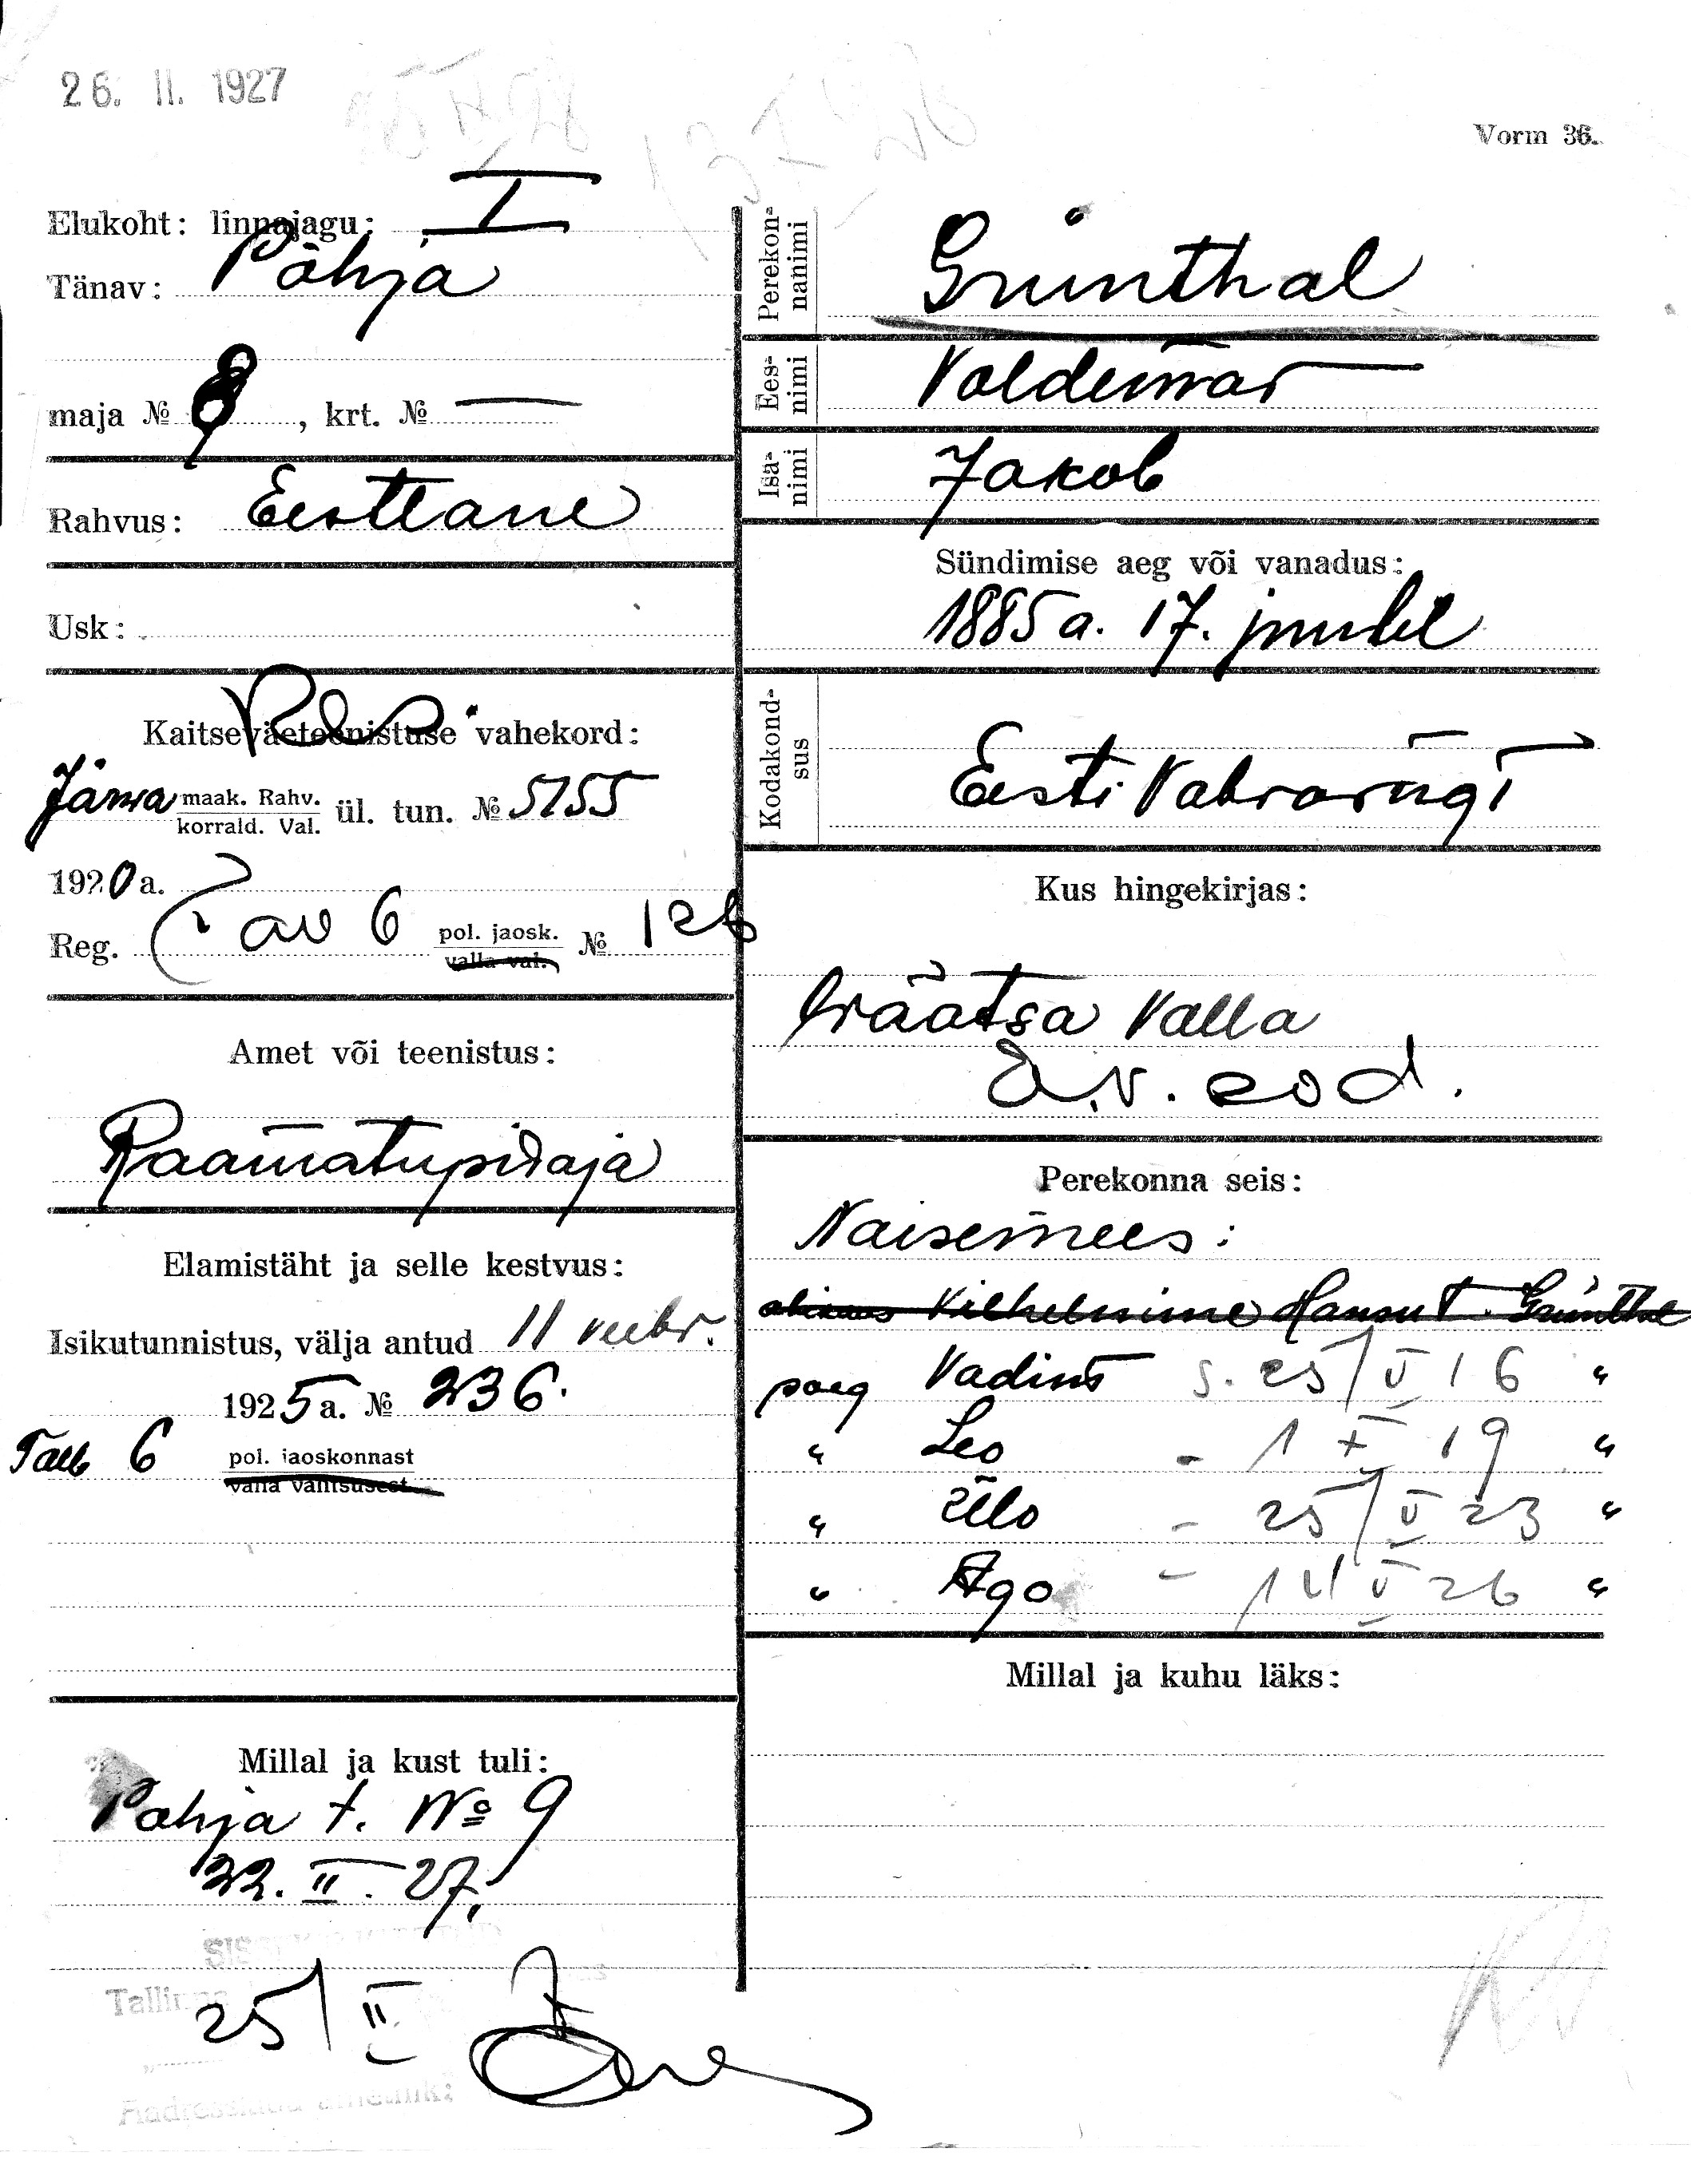 26. II. 1927
Vorm 36.
Elukoht: linnajagu: I
Tänav: Põhja
maja № 8, krt. № —
Rahvus: Eestlane
Usk:
Kaitseväeteenistuse vahekord:
Järva maak. Rahv. ül. tun. № 5155
korrald. Val.
1920 a.
Reg. 6 pol. jaosk. № 126
valla val.
Amet või teenistus:
Raamatupidaja
Elamistäht ja selle kestvus:
Isikutunnistus, välja antud 11 veebr.
1925 a. № 236.
Tall. 6 pol. jaoskonnast
valla valitsusest
Millal ja kust tuli:
Põhja t. № 9
22. II. 27.
Tallinna
25/II
Perekonnanimi
Grünthal
Eesnimi
Voldemar
Isanimi
Jakob
Sündimise aeg või vanadus:
1885 a. 17. juulil
Kodakondsus
Eesti Vabariigi
Kus hingekirjas:
Väätsa valla
Perekonna seis:
Naisemees:
abikaas Vilhelmine Hansu t. Grünthal
poeg Vadim s. 25/V 16 "
" Leo - 1 X 19 "
" Ülo - 25/V 23 "
" Ago - 14 V 26 "
Millal ja kuhu läks: